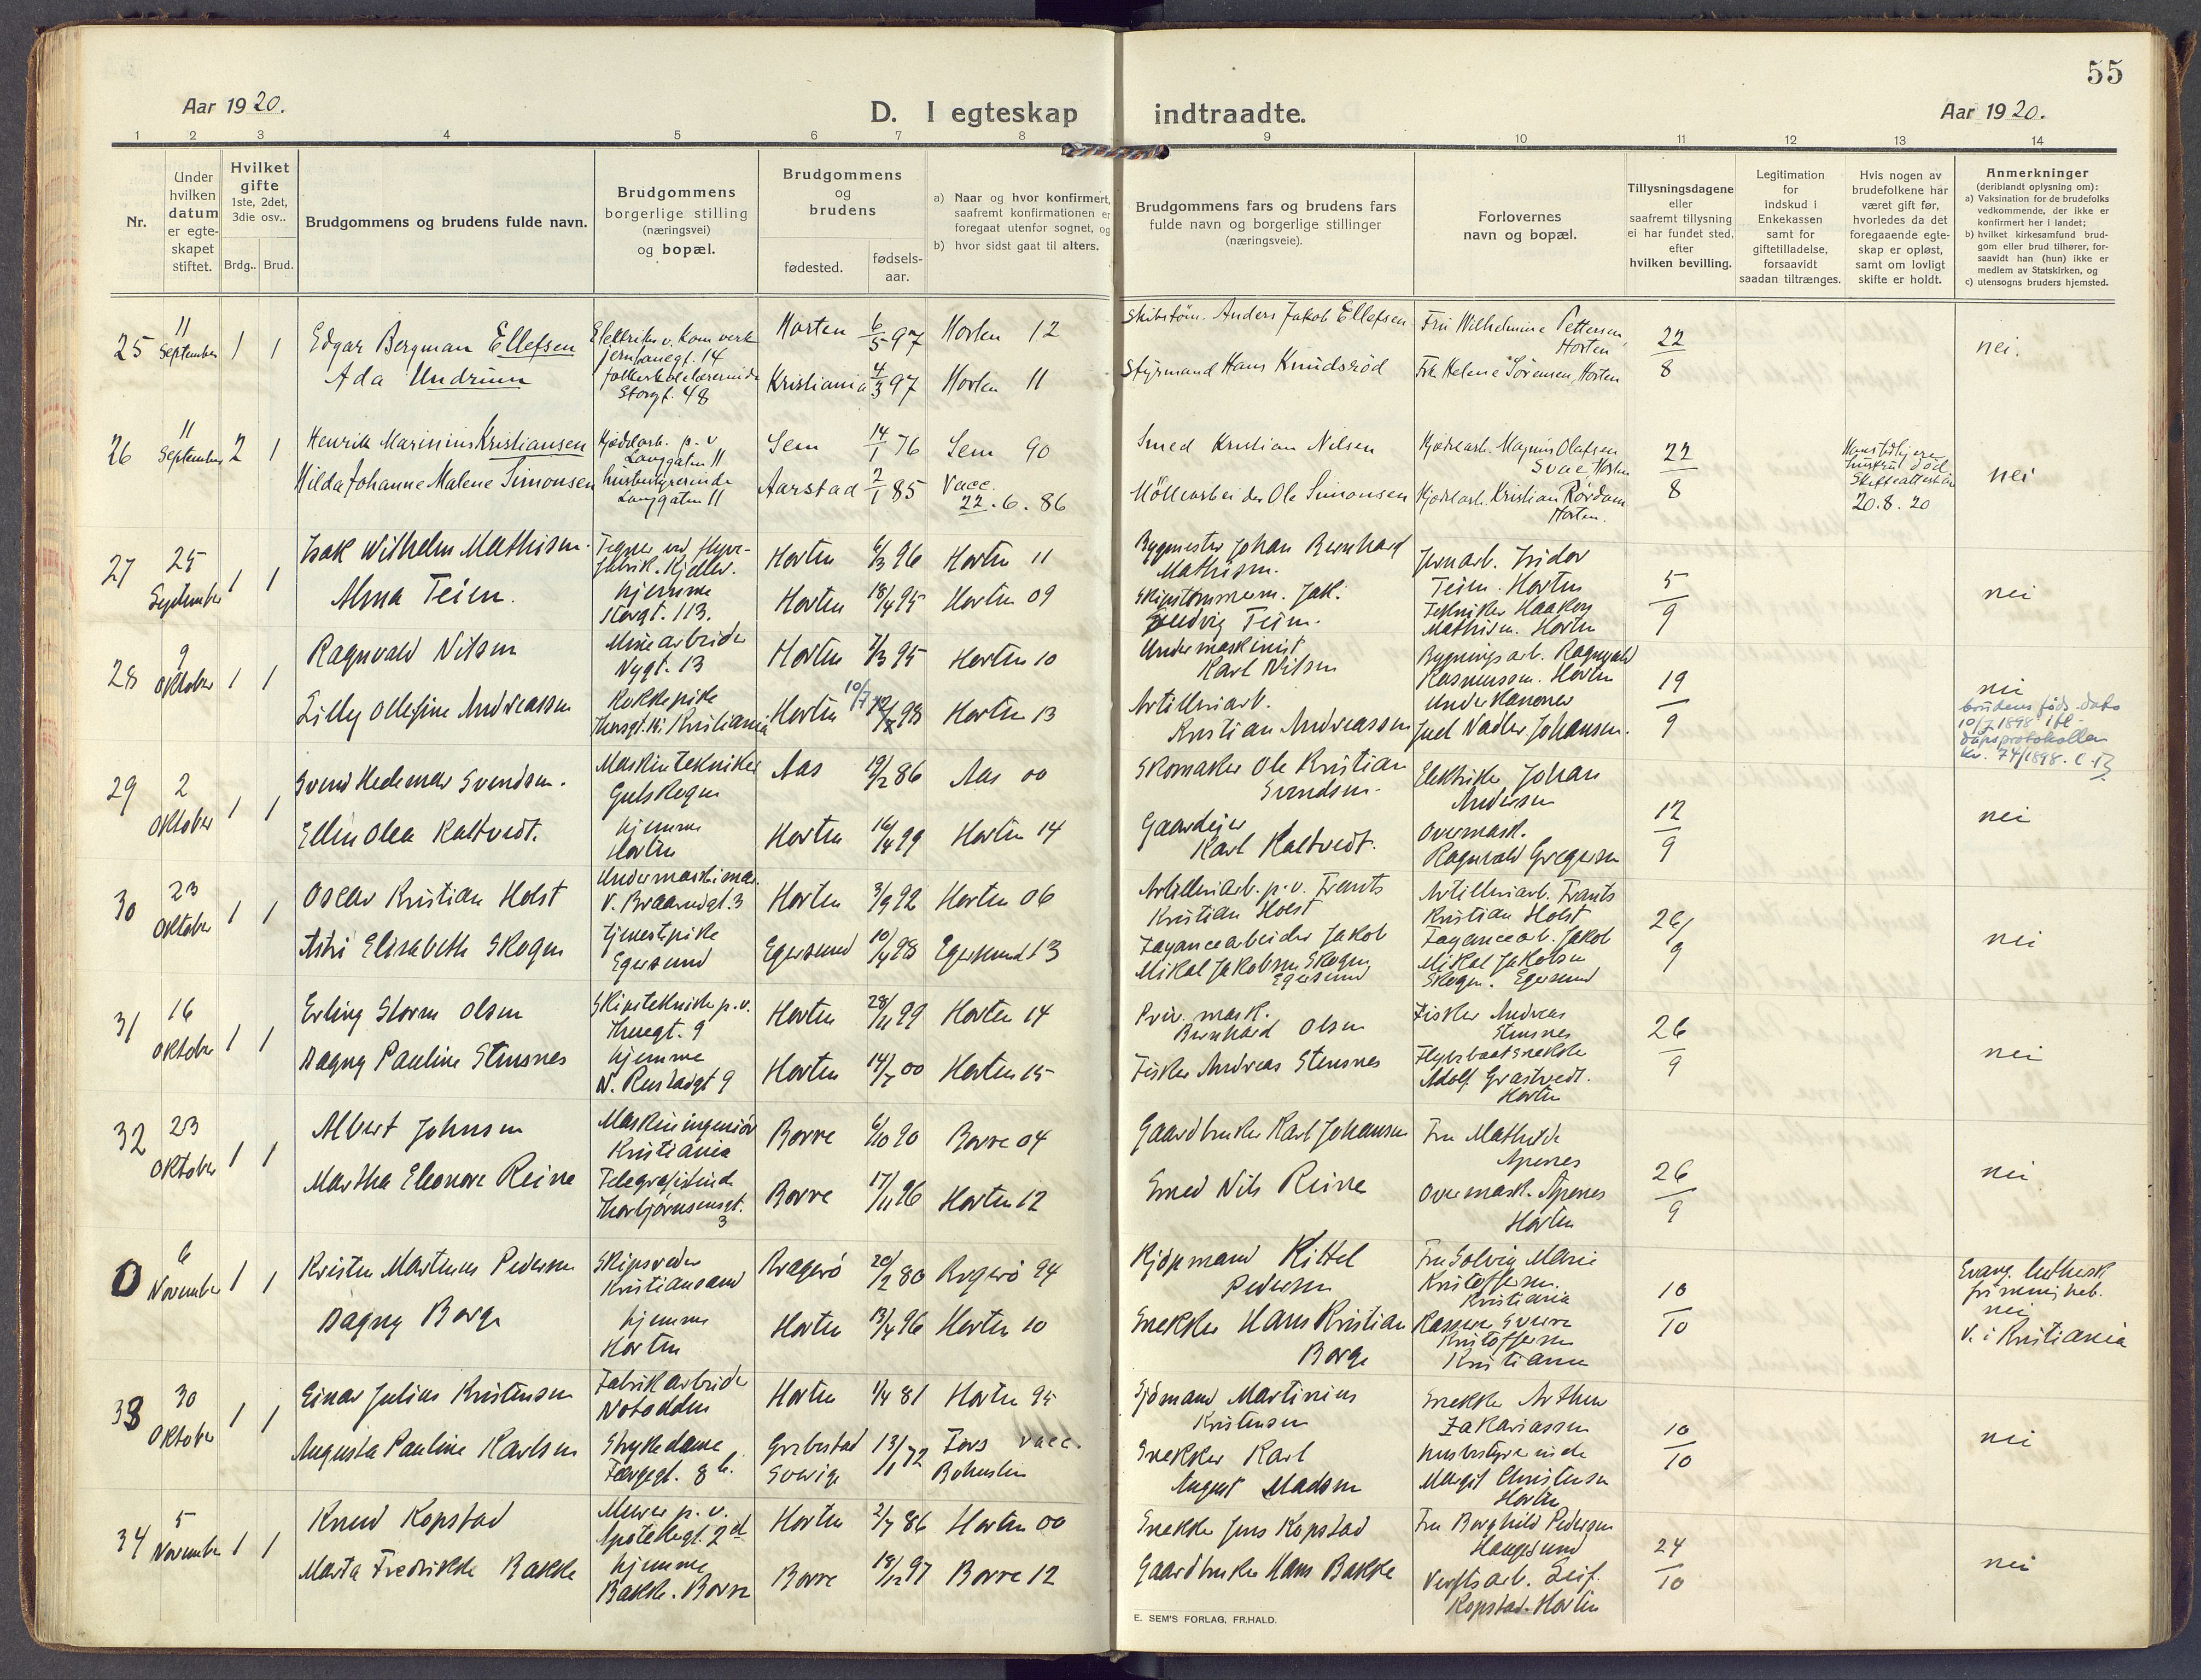 55
Aar 1920.
D. I egteskap indtraadte.
Aar 1920.
1 2 3 4 5 6 7 8 9 10 11 12 13 14
Nr.
Under hvilken datum er egte-skapet stiftet.
Hvilket gifte 1ste, 2det, 3die osv..
Brdg.. Brud.
Brudgommens og brudens fulde navn.
Brudgommens borgerlige stilling (næringsvei) og bopæl.
Brudgommens og brudens
fødested.
fødsels-aar.
a) Naar og hvor konfirmert, saafremt konfirmationen er foregaat utenfor sognet, og
b) hvor sidst gaat til alters.
Brudgommens fars og brudens fars fulde navn og borgerlige stillinger (næringsveie).
Forlovernes navn og bopæl.
Tillysningsdagene eller saafremt tillysning ei har fundet sted, efter hvilken bevilling.
Legitimation for indskud i Enkekassen samt for giftetilladelse, forsaavidt saadan tiltrænges.
Hvis nogen av brudefolkene har været gift før, hvorledes da det foregaaende egte-skap er opløst, samt om lovligt skifte er holdt.
Anmerkninger (deriblandt oplysning om):
a) Vaksination for de brudefolks vedkommende, der ikke er konfirmert her i landet;
b) hvilket kirkesamfund brud-gom eller brud tilhører, for-saavidt han (hun) ikke er medlem av Statskirken, og
c) utensogns bruders hjemsted.
25 11 September 1 1 Edgar Bergman Ellefsen
Elektriker v. Kom. verk Jernbanegt. 14
Horten 6/5 97 Horten 12
Skibstøm. Anders Jakob Ellefsen
Fru Wilhelmine Pettersen, Horten
22/8 nei.
Ada Undrum
Storgt. 48
Kristiania 4/3 97 Horten 11
Styrmand Hans Knudsrød
Frk. Helene Sørensen, Horten
26 11 September 2 1 Henrik Marinius Kristiansen
Kjedelarb. p. v. Langgaten 11
Sem 14/1 76 Sem 90
Smed Kristian Nilsen
Kjedelarb. Magnus Olafsen Svae Horten
22/8
20.8.20
nei
Hilda Johanne Malene Simonsen
husbestyrerinde Langgaten 11
Aarstad 2/1 85 Vacc. 22.6.86
Møllearbeider Ole Simonsen
Kjedelarb. Kristian Rørdam Horten.
27 25 September 1 1 Isak Wilhelm Mathisen.
Tegner ved Flyve-fabrik. Kjeller.
Horten 6/3 96 Horten 11
Bygmester Johan Bernhard Mathisen.
Jernarb. Isidor Teien. Horten
5/9 nei
Alma Teien.
hjemme Storgt. 113.
Horten 18/4 95 Horten 09
Skipstømmerm. Jak. Ludvig Teien.
Tekniker Haakon Mathisen. Horten
28 9 Oktober 1 1 Ragnvald Nilsen
Minearbeider Nygt. 13
Horten 7/3 95 Horten 10
Undermaskinist Karl Nilsen
Bygningsarb. Ragnvald Rasmussen. Horten
19/9 nei
Lilly Ollefine Andreassen
Kokkepike
Kristiania
Horten 10/7 98 Horten 13
Artilleriarb. Kristian Andreassen
Underkanoner Juel Nadler Johansen.
brudens føds. dato
10/7 1898 ifl.
daapsprotokollen
nr. 74/1898.
29 2 Oktober 1 1 Svend Hedemar Svendsen.
Maskintekniker Gulskogen
Aas 19/2 86 Aas 00
Skomaker Ole Kristian Svendsen.
Elektriker Johan Andersen
12/9 nei
Ellen Olea Kaltvedt.
hjemme Horten
Horten 16/4 99 Horten 14
Gaardejer Karl Kaltvedt.
Overmask. Ragnvald Gregersen
30 23 Oktober 1 1 Oscar Kristian Holst
Undermaskinas. V. Braarudgt. 3
Horten 3/9 92 Horten 06
Artilleriarb. p.v. Frants Kristian Holst
Artilleriarb. Frants Kristian Holst
26/9 nei
Astri Elisabeth Skogen
tjenestepike Egersund
Egersund 10/4 98 Egersund 13
Fayancearbeider Jakob Mikal Jakobsen Skogen Egersund
Fayancearb. Jakob Mikal Jakobsen Skogen. Egersund
31 16 Oktober 1 1 Erling Storm Olsen
Skipstekniker p.v.
Horten 28/11 99 Horten 14
Priv. mask. Bernhard Olsen
Fisker Andreas Stensnes
26/9 nei
Dagny Pauline Stensnes
hjemme
Horten 14/7 00 Horten 15
Fisker Andreas Stensnes
Adolf Grastvedt. Horten
32 23 Oktober 1 1 Albert Johnsen
Maskiningeniør Kristiania
Borre 6/10 90 Borre 04
Gaardbruker Karl Johansen
Fru Mathilde Apenes
26/9 nei
Martha Eleonore Reine
Telegrafistinde Thorbjørnsensgt. 3
Borre 17/11 96 Horten 12
Smed Nils Reine
Overmask. Apenes Horten
0 6 November 1 1 Kristen Martinus Pedersen
Skipsreder Kristiansand
Kragerø 20/2 80 Kragerø 94
Kjøpmand Kittel Pedersen
Fru Solveig Marie Kristoffersen. Kristiania
10/10
Evang. luthersk frimenighet.
nei
V. i Kristiania
Dagny Borge
hjemme Horten
Horten 13/4 96 Horten 10
Snekker Hans Kristian Borge
Kasserer Sverre Kristoffersen Kristiania
33 30 Oktober 1 1 Einar Julius Kristensen
Fabrikarbeider Notodden
Horten 1/4 81 Horten 95
Sjømand Martinius Kristensen
Snekker Arthur Zakariassen
10/10 nei
Augusta Pauline Karlsen
Strykedame Færgegt. 8 b.
Grebestad Sverige 13/1 72 Fors vacc. Bohuslen
Snekker Karl August Madsen
husbestyrerinde Margit Christensen Horten
34 5 November 1 1 Knud Kopstad
Murer p. v. Apotekergt. 2
Horten 2/7 86 Horten 00
Snekker Jens Kopstad
Fru Borghild Pedersen Haugesund
24/10 nei
Marta Fredrikke Bakke
hjemme Bakke. Borre
Borre 18/12 97 Borre 12
Gaardbruker Hans Bakke
Verftsarb. Leif Kopstad. Horten
E. SEM'S FORLAG, FR.HALD.